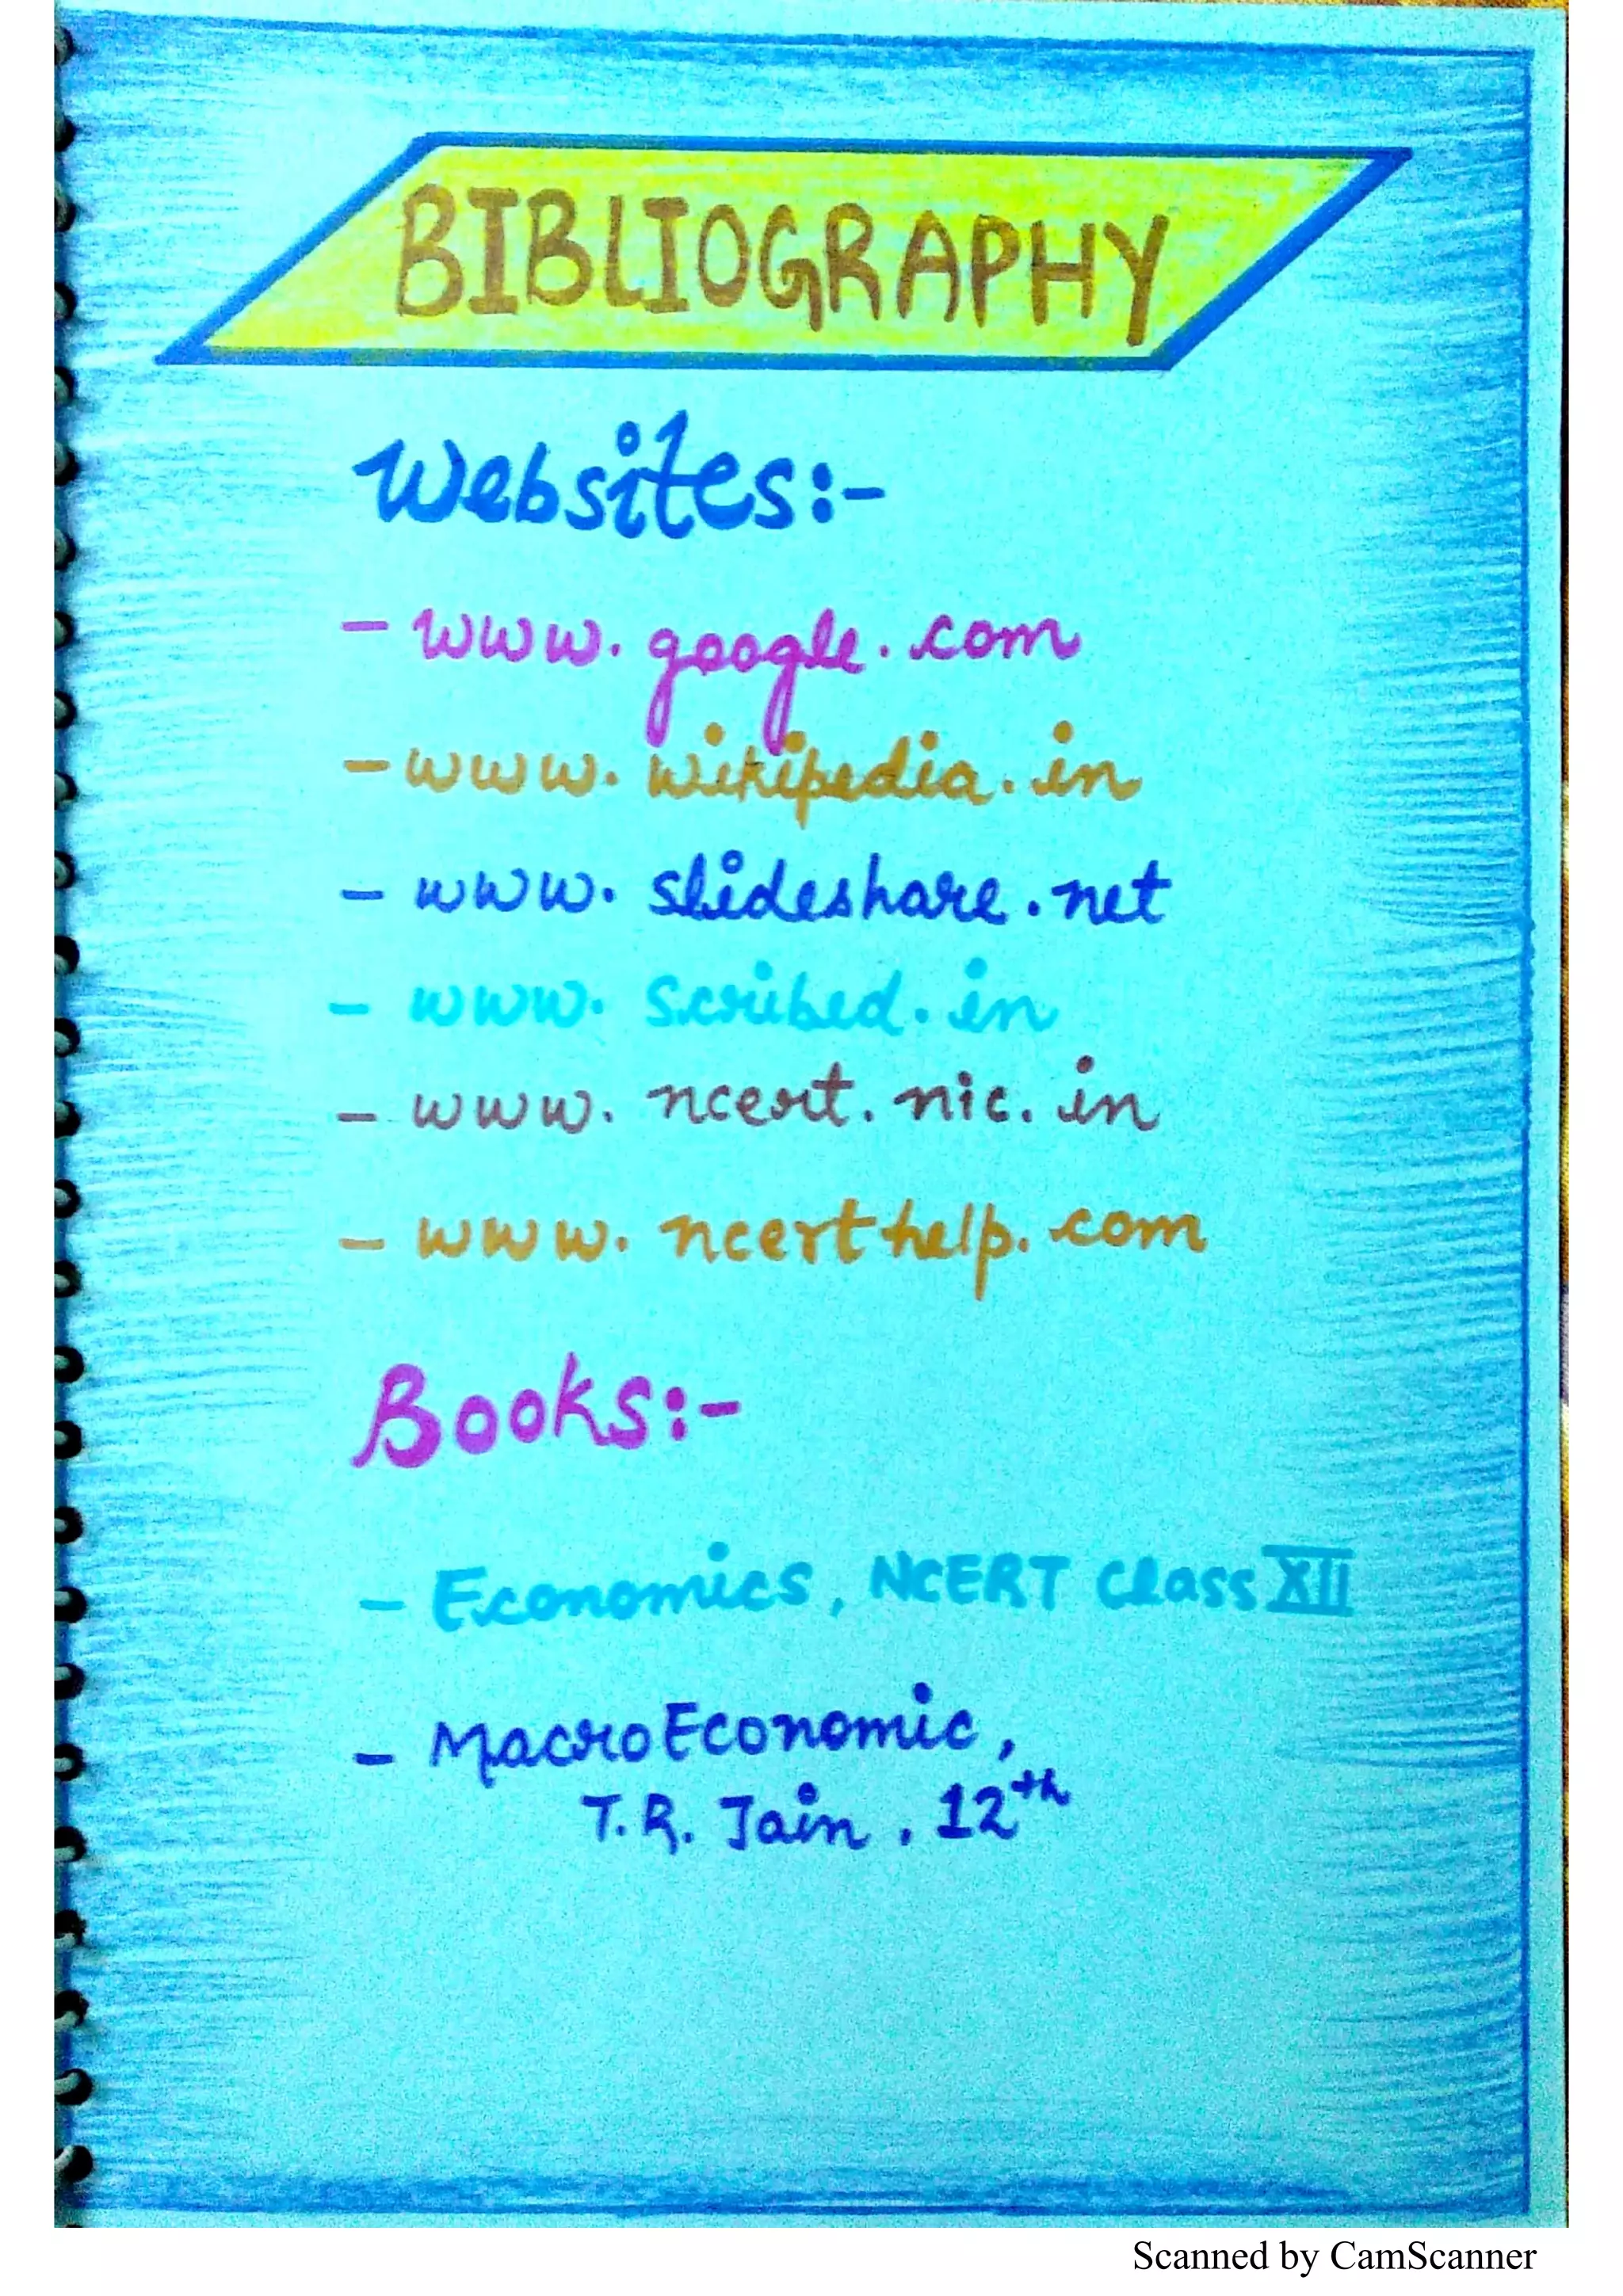 BIBLIOGRAPHY
Websites:-
- www.google.com
- www.wikipedia.in
- www.slideshare.net
- www.scribed.in
- www.ncert.nic.in
- www.ncerthelp.com
Books:-
- Economics, NCERT Class XII
- MacroEconomic,
T.R. Jain, 12th
Scanned by CamScanner